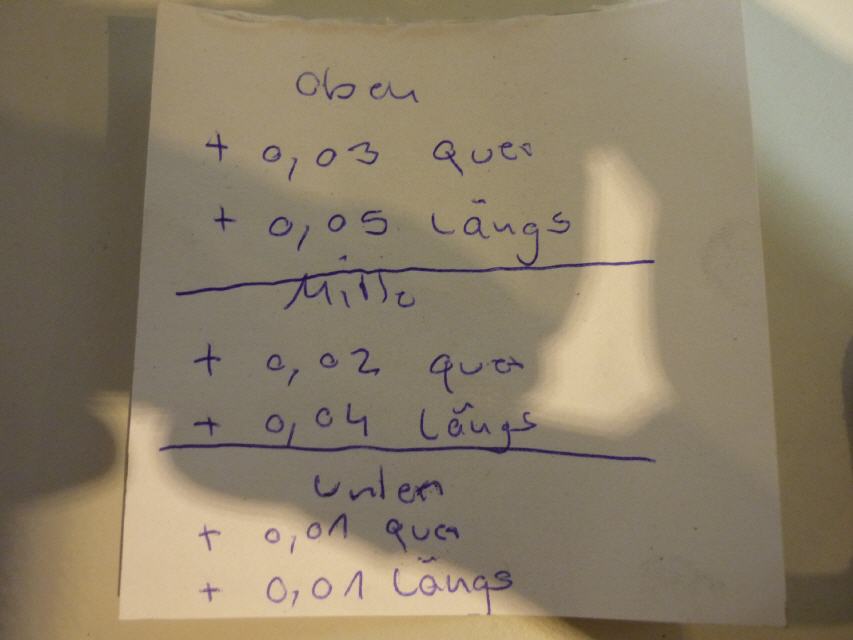 Oben
+ 0,03 quer
+ 0,05 Längs
Mitte
+ 0,02 quer
+ 0,04 Längs
Unten
+ 0,01 quer
+ 0,01 Längs